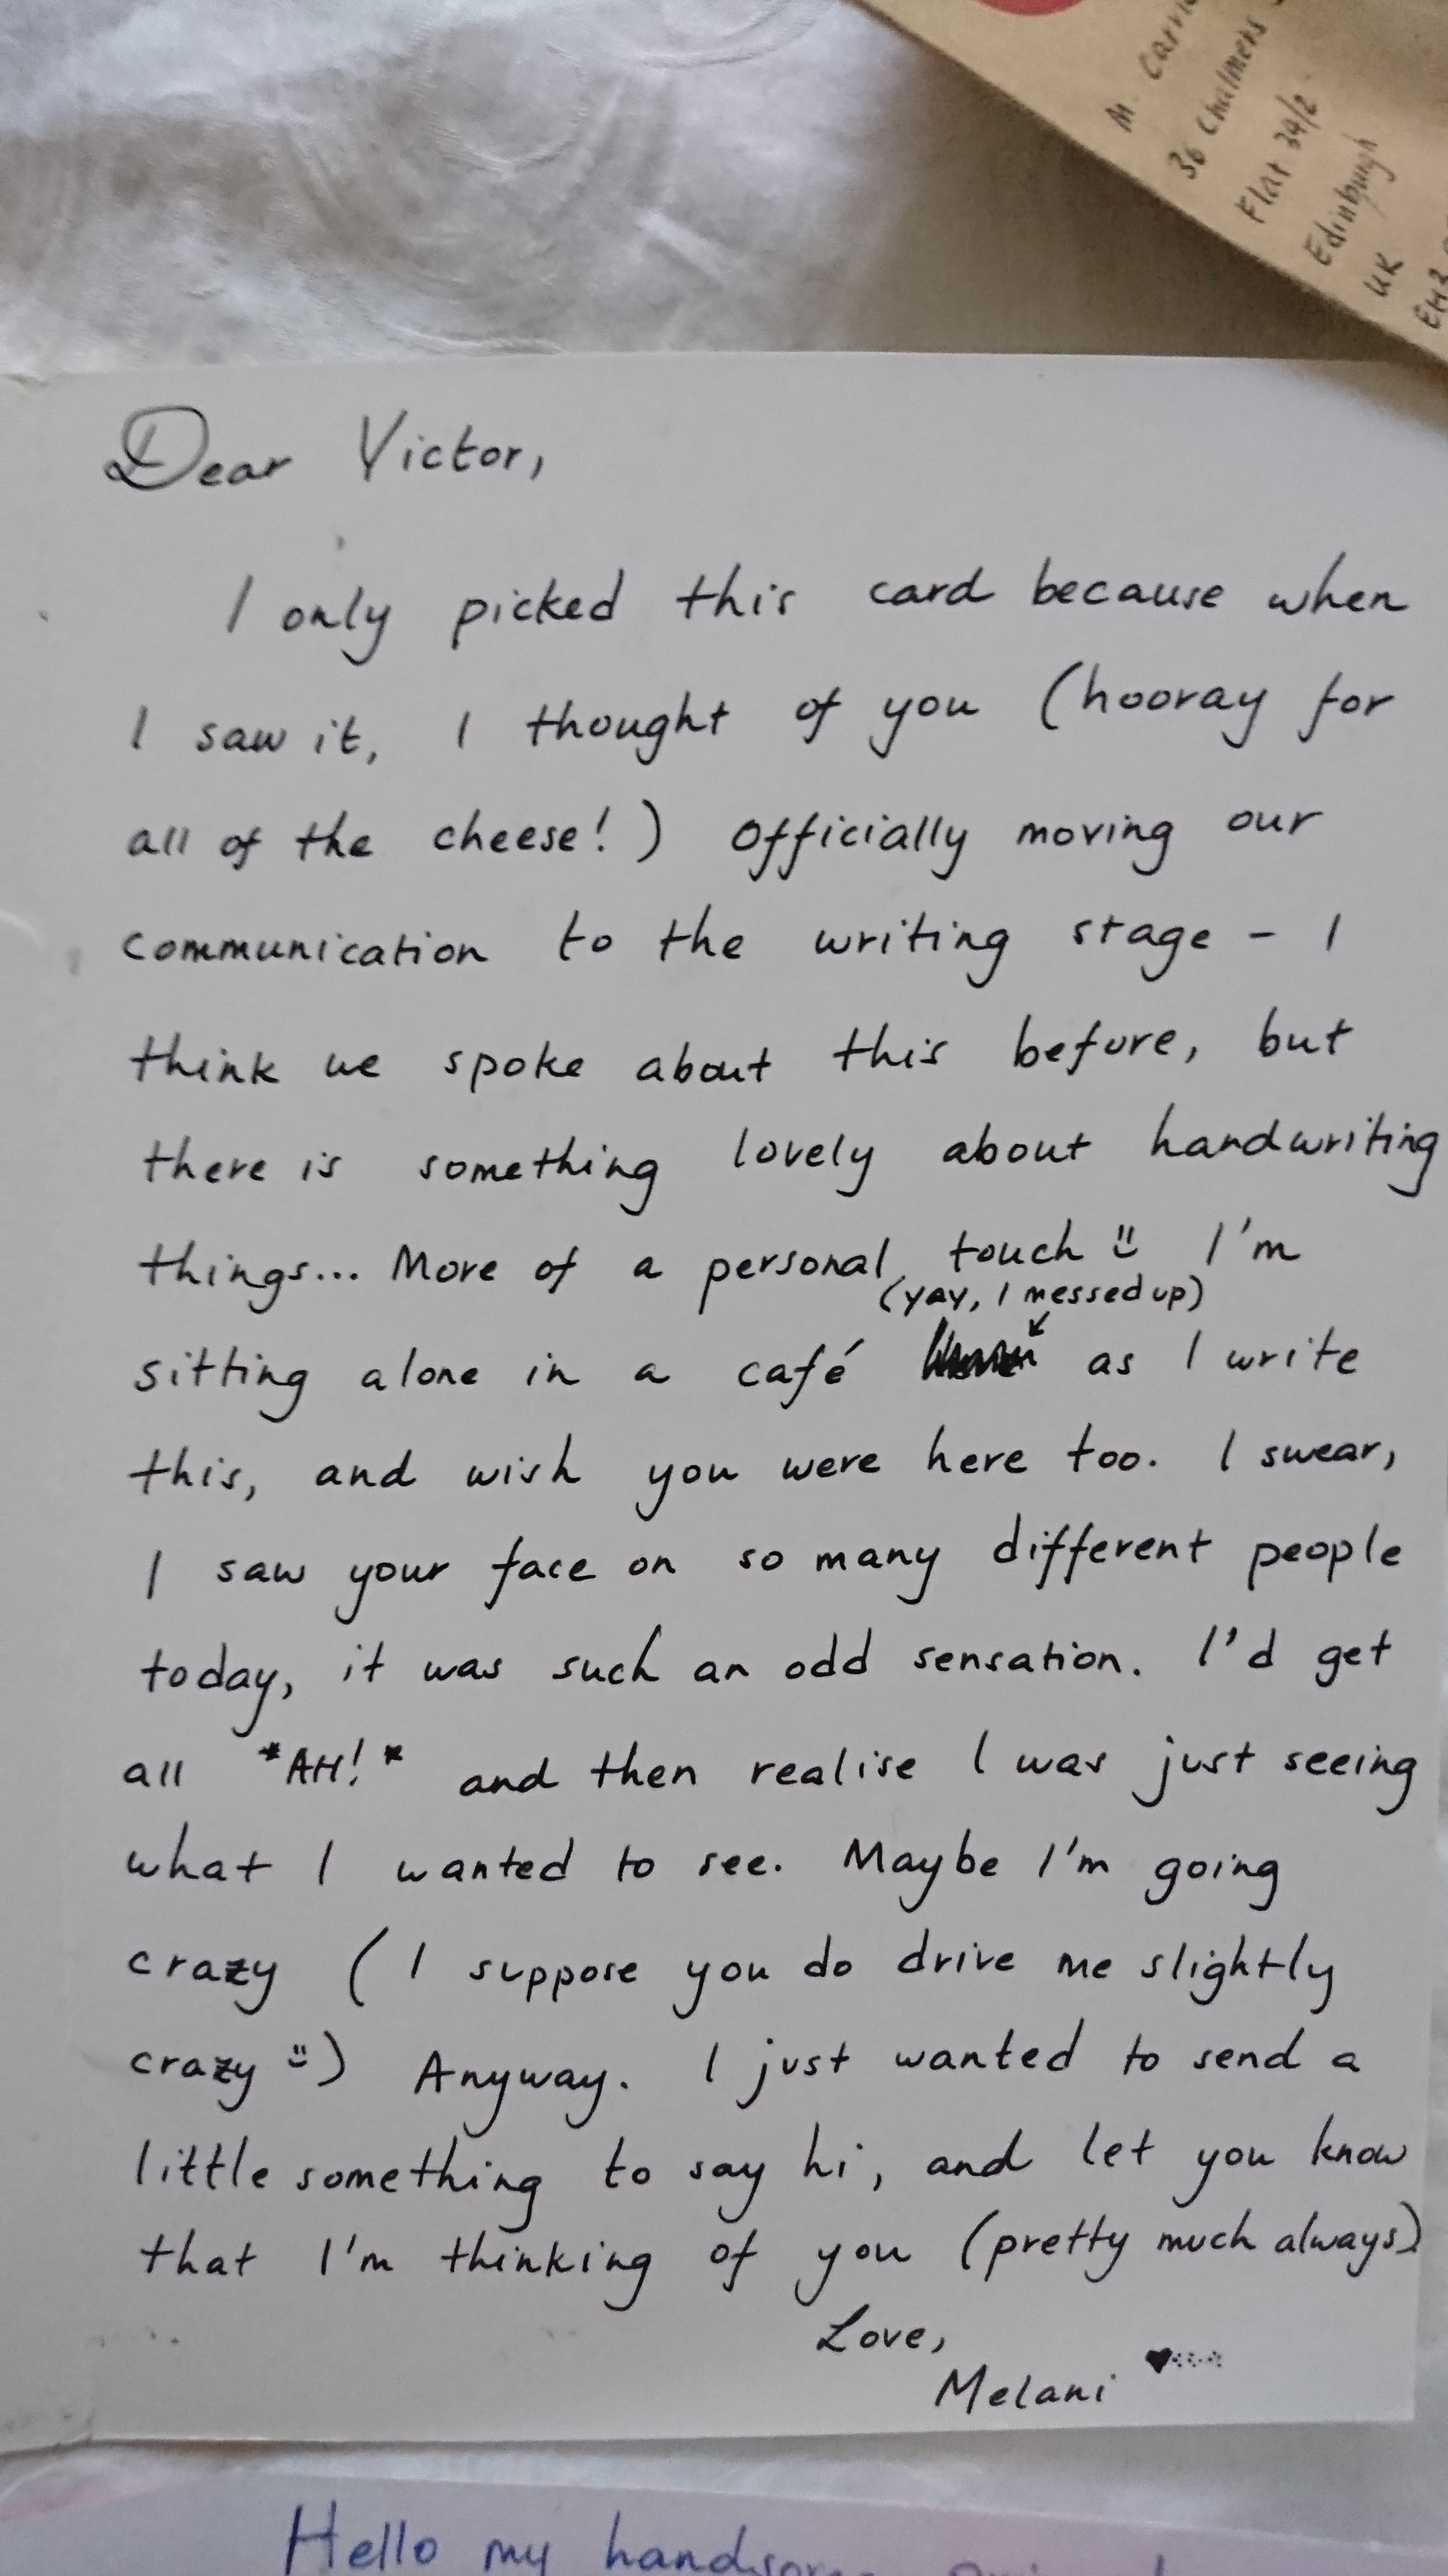 M.
36 Chalmers
Flat 34/2
Edinburgh
UK
Dear Victor,
I only picked this card because when
I saw it, I thought of you (hooray for
all of the cheese!) Officially moving our
communication to the writing stage - I
think we spoke about this before, but
there is something lovely about handwriting
things... More of a personal touch :) I'm
(yay, I messed up)
sitting alone in a café as I write
this, and wish you were here too. I swear,
I saw your face on so many different people
today, it was such an odd sensation. I'd get
all *AH!* and then realise I was just seeing
what I wanted to see. Maybe I'm going
crazy (I suppose you do drive me slightly
crazy :) ) Anyway. I just wanted to send a
little something to say hi, and let you know
that I'm thinking of you (pretty much always)
Love,
Melani ♥
Hello my